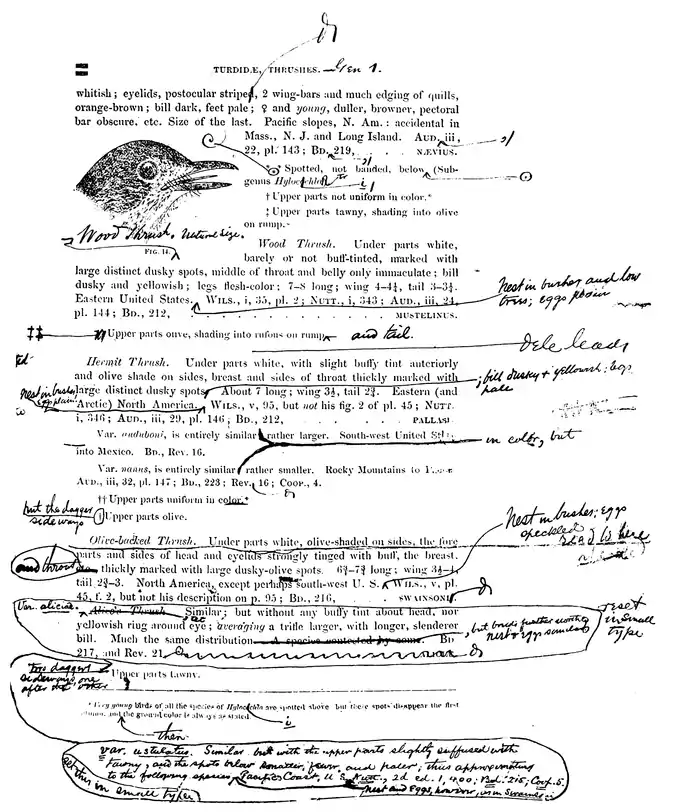 TURDIDÆ, THRUSHES. Gen 1.
whitish; eyelids, postocular stripe, 2 wing-bars and much edging of quills,
orange-brown; bill dark, feet pale; ♀ and young, duller, browner, pectoral
bar obscure, etc. Size of the last. Pacific slopes, N. Am.: accidental in
Mass., N. J. and Long Island. AUD., iii,
22, pl. 143; BD., 219, . . . . NÆVIUS.
* * Spotted, not banded, below (Sub-
genus Hylocichla
† Upper parts not uniform in color.*
‡ Upper parts tawny, shading into olive
on rump.
Wood Thrush. Natural size.
FIG. 14.
Wood Thrush. Under parts white,
barely or not buff-tinted, marked with
large distinct dusky spots, middle of throat and belly only immaculate; bill
dusky and yellowish; legs flesh-color; 7–8 long; wing 4–4¼, tail 3–3¼.
Eastern United States. WILS., i, 35, pl. 2; NUTT., i, 343; AUD., iii, 24,
pl. 144; BD., 212, . . . . . . . . . MUSTELINUS.
Nest in bushes and low
trees; eggs plain
‡‡ Upper parts olive, shading into rufous on rump and tail.
dele leads
Hermit Thrush. Under parts white, with slight buffy tint anteriorly
and olive shade on sides, breast and sides of throat thickly marked with
; bill dusky & yellowish; legs
pale
large distinct dusky spots. About 7 long; wing 3½, tail 2¾. Eastern (and
Arctic) North America. WILS., v, 95, but not his fig. 2 of pl. 45; NUTT.
i, 346; AUD., iii, 29, pl. 146; BD., 212, . . . . . PALLASI.
nest in bushes
eggs plain
Var. auduboni, is entirely similar rather larger. South-west United
in color, but
into Mexico. BD., Rev. 16.
Var. nanus, is entirely similar rather smaller. Rocky Mountains to
AUD., iii, 32, pl. 147; BD., 223; Rev., 16; COOP., 4.
†† Upper parts uniform in color.*
put the dagger
sideways
Upper parts olive.
Olive-backed Thrush. Under parts white, olive-shaded on sides, the fore
parts and sides of head and eyelids strongly tinged with buff, the breast
and throat
thickly marked with large dusky-olive spots. 6¾–7¾ long; wing 3¾–4,
tail 2¾–3. North America, except perhaps south-west U. S. WILS., v, pl.
45, f. 2, but not his description on p. 95; BD., 216, . . SWAINSONI
Nest in bushes; eggs
speckled
Var. aliciæ.
Alice's Thrush. Similar; but without any buffy tint about head, nor
yellowish ring around eye; averaging a trifle larger, with longer, slenderer
bill. Much the same distribution. A species contested by some. BD.
217, and Rev. 21.
but breeds further north;
nest & eggs similar
reset
in small
type
two daggers
sideways, one
after the other
Upper parts tawny.
* Very young birds of all the species of Hylocichla are spotted above but these spots disappear the first
and the ground color is always as stated.
then
var. ustulatus. Similar but with the upper parts slightly suffused with
tawny, and the spots below smaller, fewer and paler; thus approximating
to the following species. Pacific Coast, U. S. Nutt., 2d ed. 1, 400; Bd. 215; Coop. 5.
Nest and Eggs, however, as in Swainsoni
set this in small type